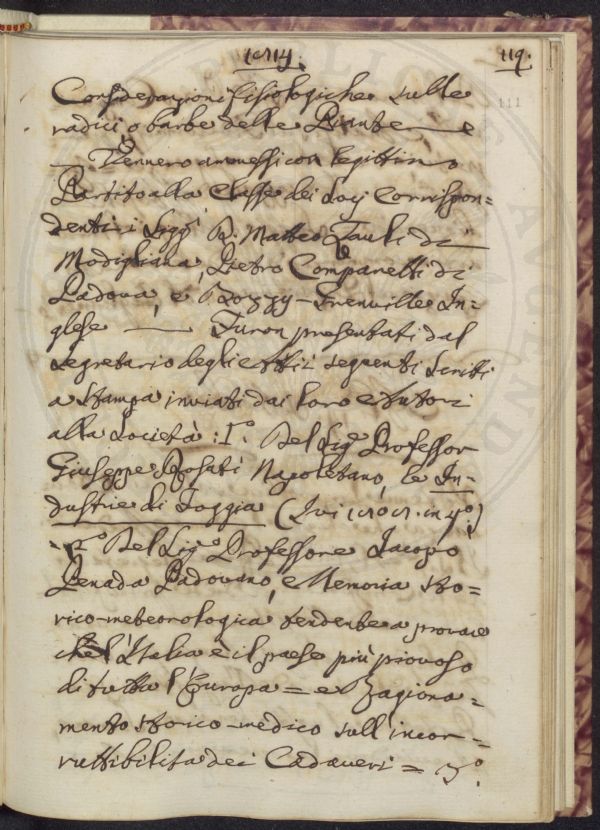 1814. 119.
111
Considerazioni fisiologiche sulle
radici o barbe delle Piante — e
— Vennero ammessi con legittimo
Partito alla Classe dei Socj Corrispon=
denti i Sigg.i D. Matteo Fauli di
Modigliana, Pietro Companelli di
Padova, e Bozzy-Grenville In=
glese — Furon presentati dal
Segretario degli Atti i seguenti scritti
a Stampa inviati dai loro Autori
alla Società: 1.° Del Sig.e Professor
Giuseppe Rosati Napoletano, le In=
dustrie di Foggia (Ivi 1808. in 4.°)
- 2.° Del Sig.e Professore Jacopo
Penada Padovano, Memoria sto=
rico-meteorologica tendente a provare
che l'Italia è il paese più piovoso
di tutta l'Europa = e Ragiona=
mento storico-medico sull'incor=
ruttibilità dei Cadaveri = 3.°